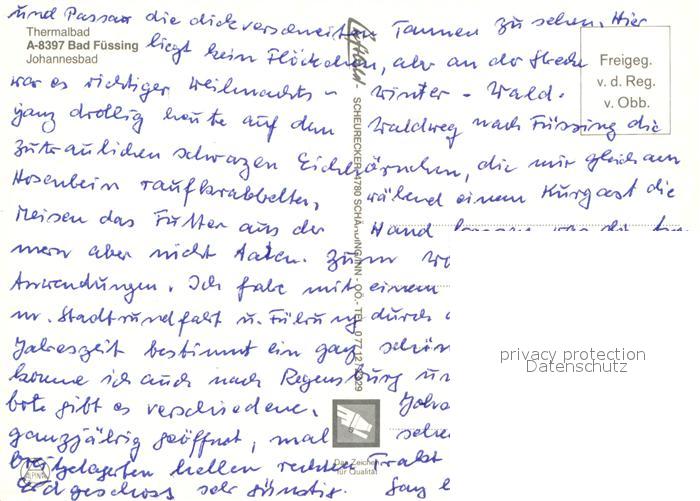 und Passau die dick verschneiten Tannen zu sehen. Hier
Thermalbad
A-8397 Bad Füssing
Johannesbad
liegt kein Flöckchen, aber an der Strecke
war es richtiger Weihnachts- Winter-Wald.
ganz drollig heute auf dem Waldweg nach Füssing die
zutraulichen schwarzen Eichhörnchen, die mir gleich am
Hosenbein raufkrabbelten, während einem Kurgast die
Meisen das Futter aus der Hand
aber nicht Zum
Anwendungen. Ich habe mit einem
m. Stadtrundfahrt u. Führung durch
Jahreszeit bestimmt ein ganz schön
könne ich auch nach Regensburg un
bote gibt es verschiedene. Joha
ganzjährig geöffnet, mal sehe
hellen rechten Trakt
Erdgeschoss sehr günstig. Ganz
Freigeg.
v. d. Reg.
v. Obb.
SCHEURECKER, 4780 SCHÄRDING/INN - OÖ. - TEL.
Das Zeichen
für Qualität
ALPINA
privacy protection
Datenschutz